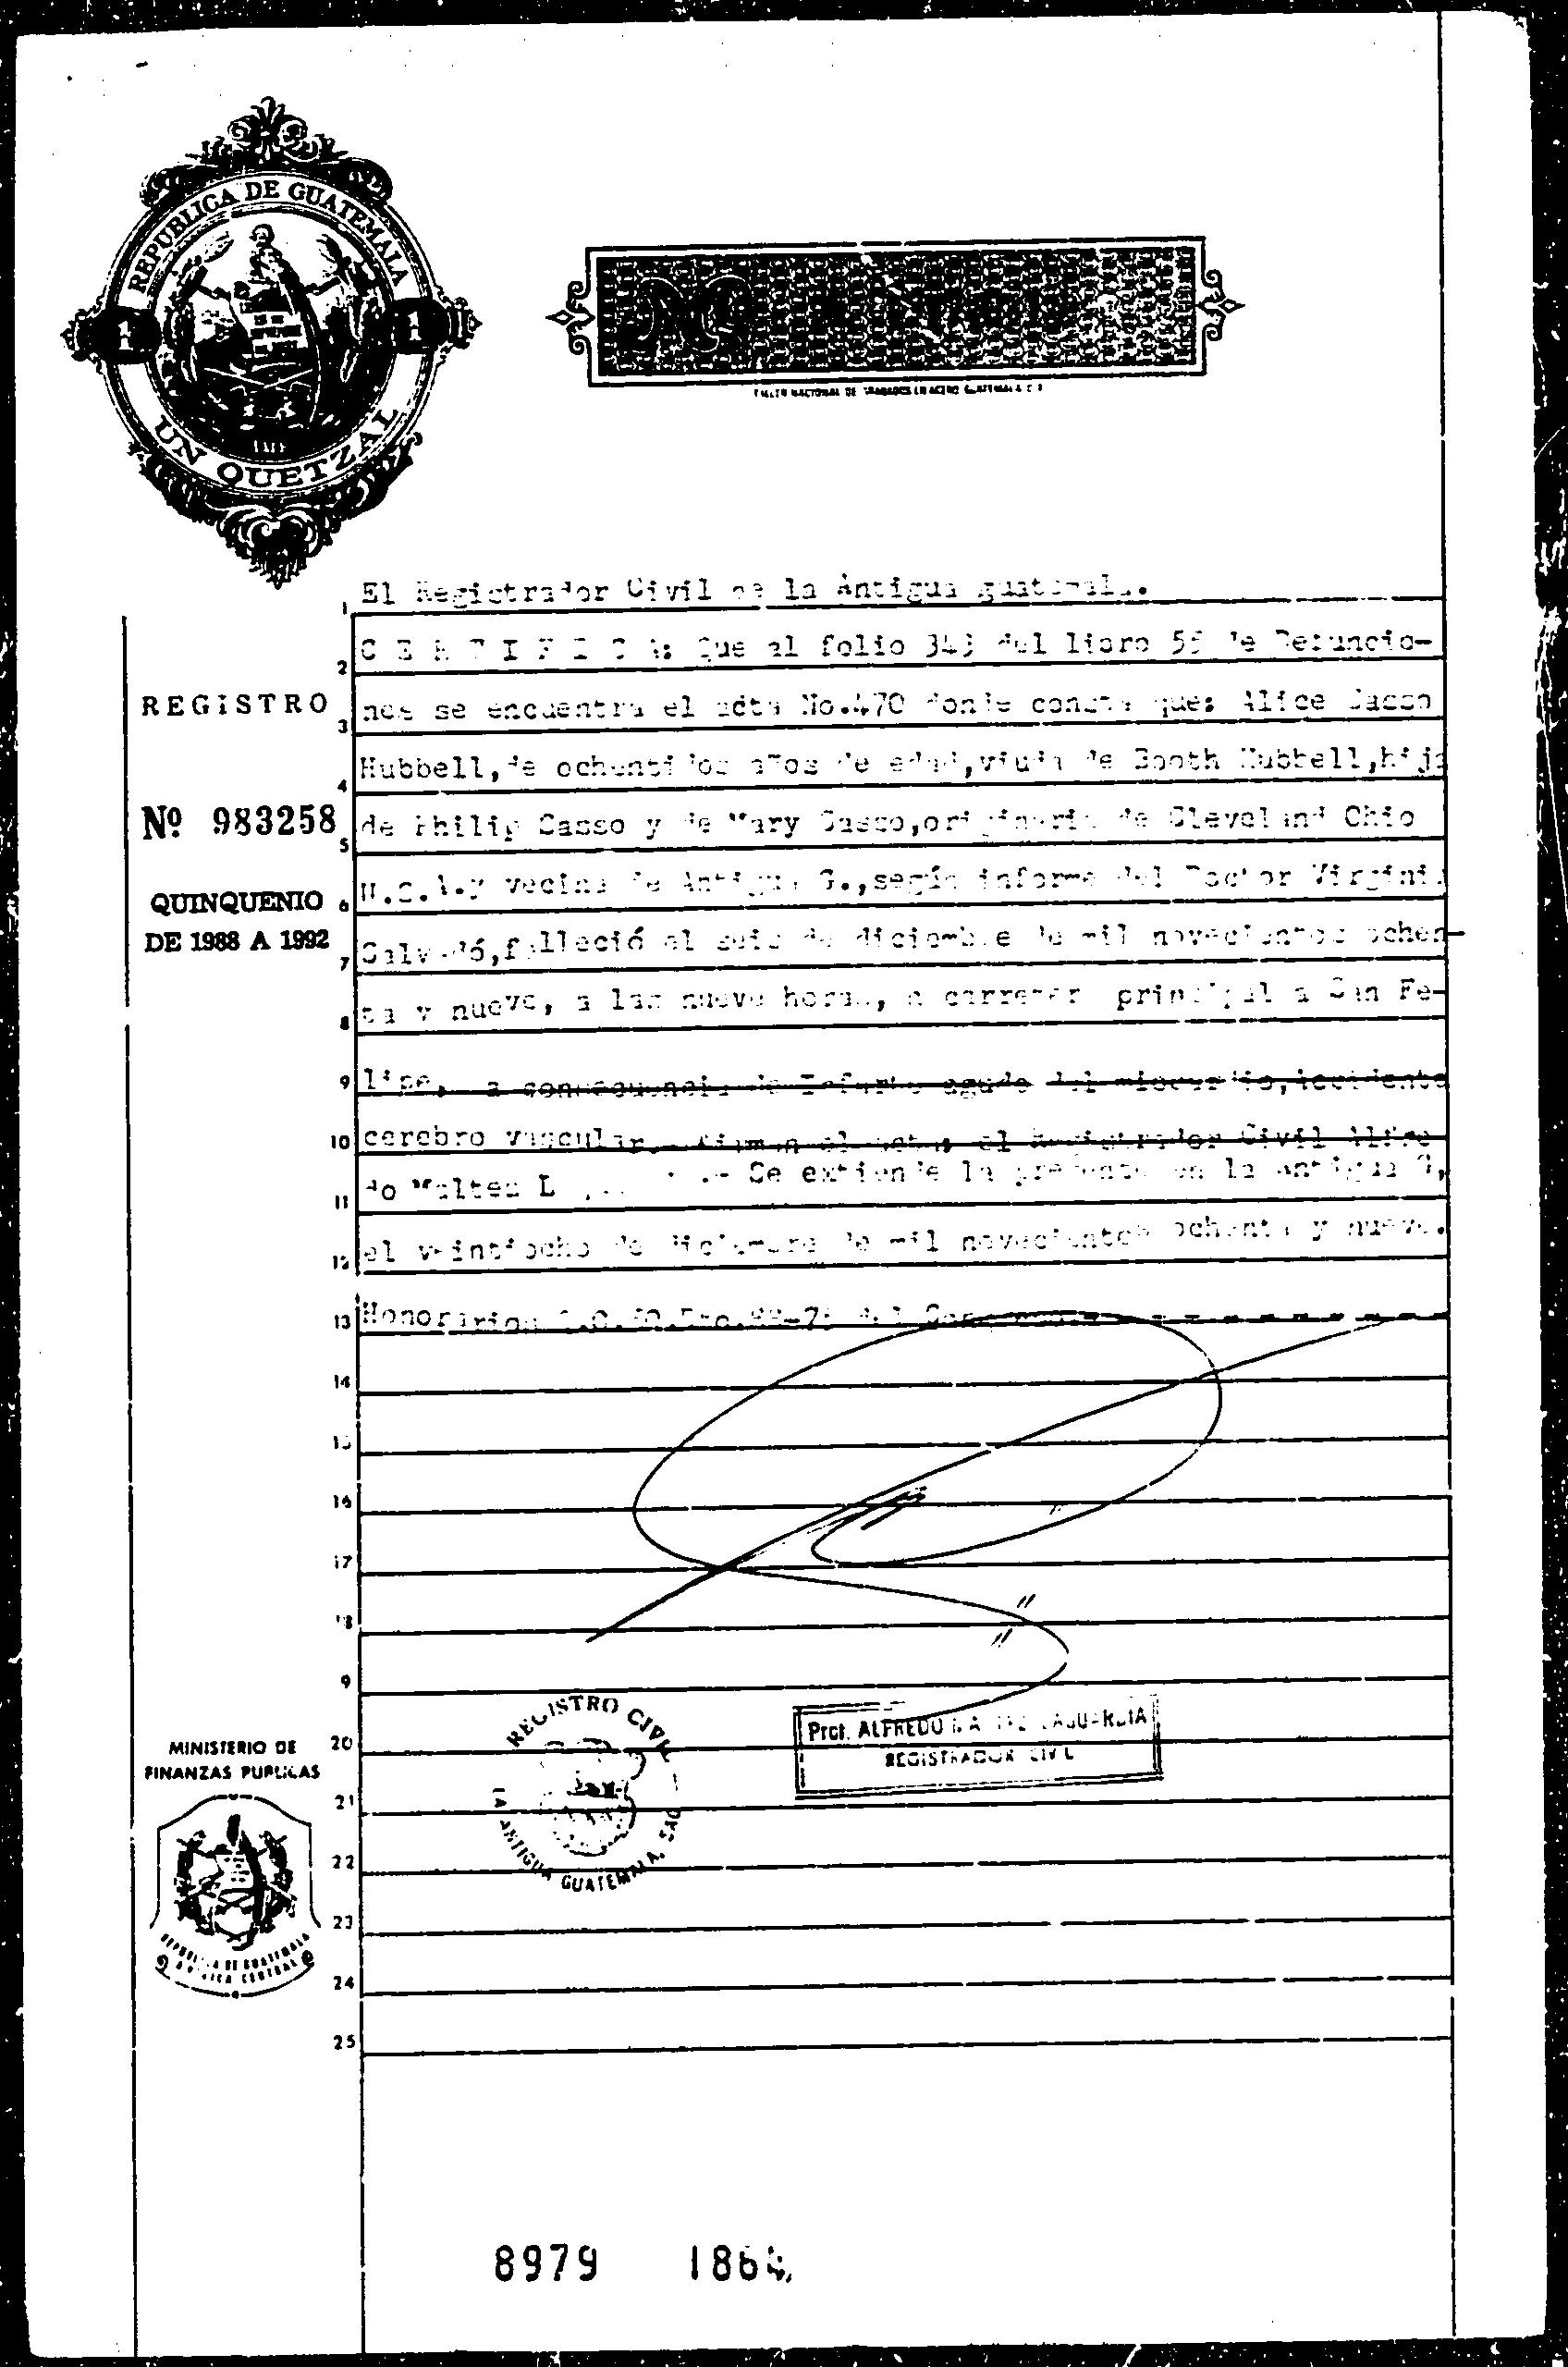 REPUBLICA DE GUATEMALA
1 1
UN QUETZAL
TALLER NACIONAL DE GRABADOS EN ACERO GUATEMALA C A
1 El Registrador Civil de la Antigua guatemala.
2 C E R T I F I C A: Que al folio 343 del libro de Defuncio-
REGISTRO
3 nes se encuentra el acta No.470 donde consta que: Alice Sasso
4 Hubbell,de ochentidos años de edad,viuda de Booth Hubbell,hija
Nº 983258
5 de Philip Sasso y de Mary Sasso,originaria de Cleveland Ohio
QUINQUENIO
DE 1988 A 1992
6 U.S.A.y vecina de Antigua G.,según informe del Doctor
7 falleció el seis de diciembre de mil novecientos ochen-
8 ta y nueve, a las nueve horas, a carretera principal a San Fe-
9 lipe, a consecuencia de Infarto agudo del miocardio,Accidente
10 cerebro vascular. el el Registrador Civil Alfre-
11 do Se extiende la presente en la antigua G,
12 el veintiocho de diciembre de mil novecientos ochenta y nueve.
13 Honorarios del
14
15
16
17
18
9
REGISTRO CIVIL
LA ANTIGUA GUATEMALA, SAC
Prof. ALFREDO
REGISTRADOR CIVIL
MINISTERIO DE
FINANZAS PUBLICAS
20
21
22
23
REPUBLICA DE GUATEMALA
AMERICA CENTRAL
24
25
8979